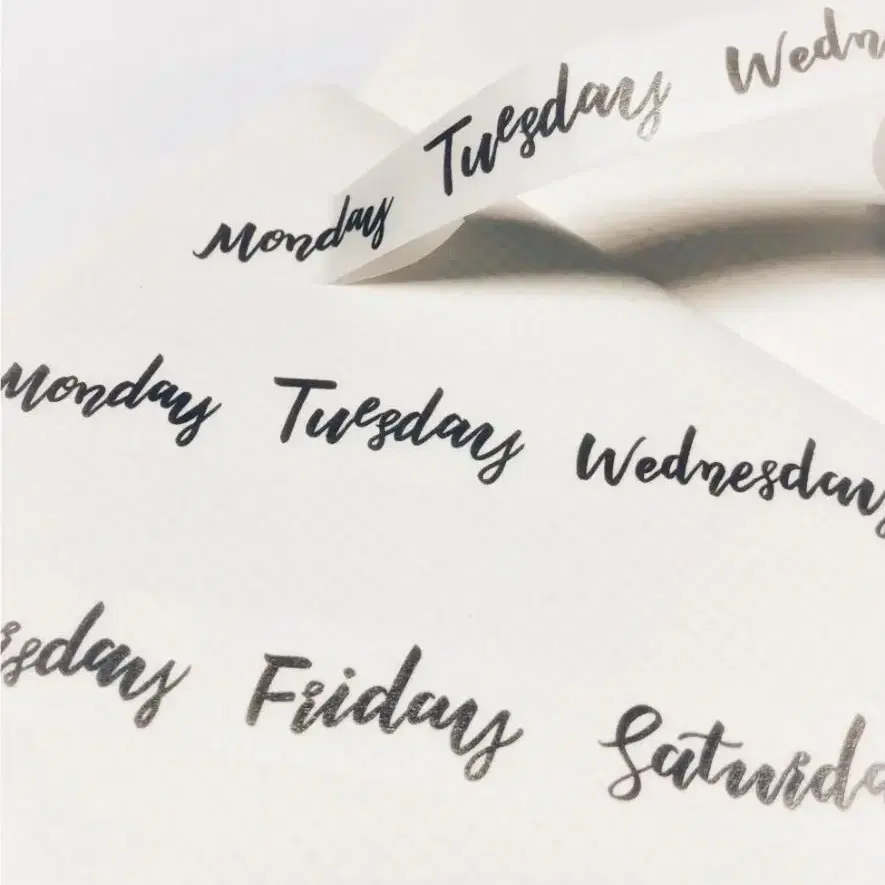 Monday Tuesday Wedn
Monday Tuesday Wednesday
sday Friday Saturda